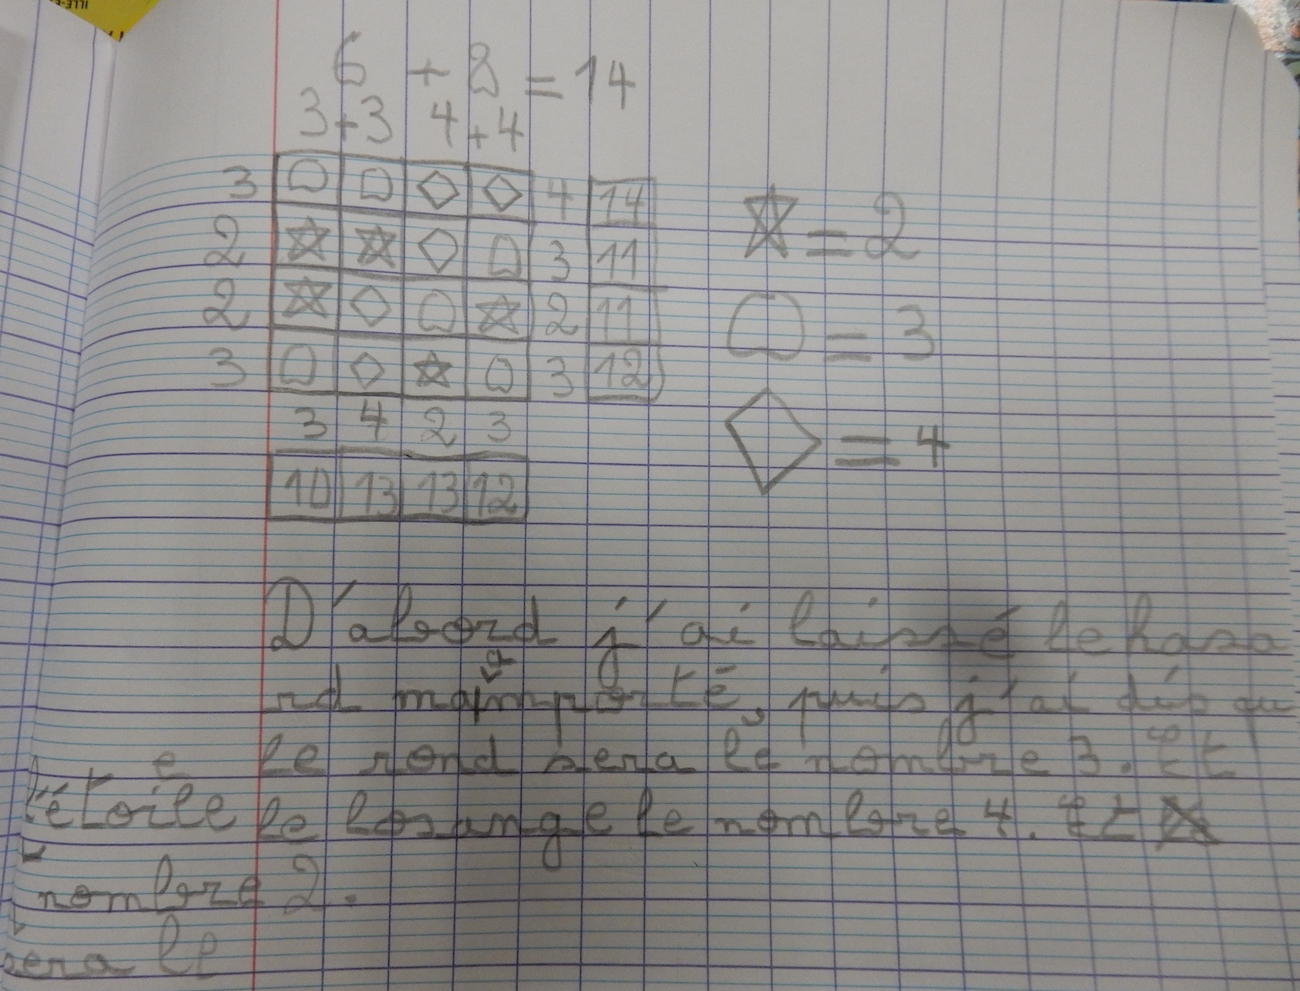 6 + 8 = 14
3+3 4+4
3 4 14
2 3 11
2 2 11
3 3 12
3 4 2 3
10 13 13 12
= 2
= 3
= 4
D'abord j'ai laissé le hasa
rd puis j'ai
le rond sera le nombre 3. Et
le losange le nombre 4. Et
l'étoile
nombre 2.
sera le